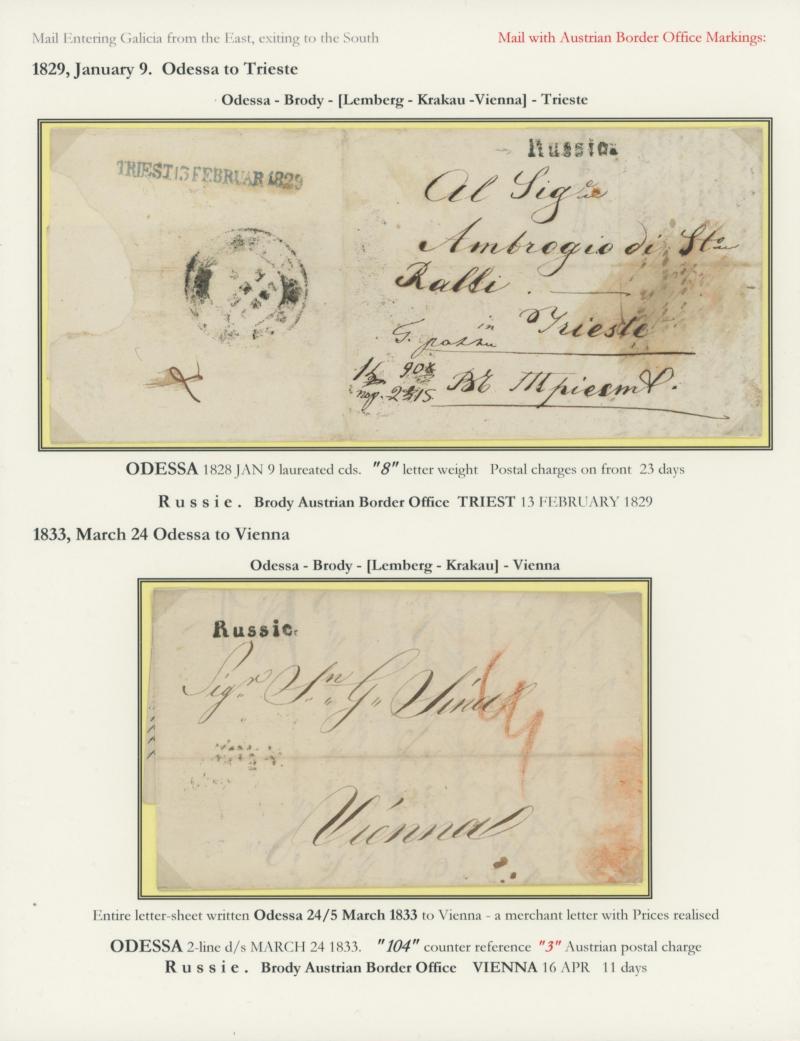 Mail Entering Galicia from the East, exiting to the South
Mail with Austrian Border Office Markings:
1829, January 9. Odessa to Trieste
Odessa - Brody - [Lemberg - Krakau -Vienna] - Trieste
TRIEST 13 FEBRUAR 1829
Russie.
Al Sigre
Ambrogio di Ste
Ralli
in Trieste
Въ Триестъ.
ODESSA 1828 JAN 9 laureated cds. "8" letter weight Postal charges on front 23 days
Russie. Brody Austrian Border Office TRIEST 13 FEBRUARY 1829
1833, March 24 Odessa to Vienna
Odessa - Brody - [Lemberg - Krakau] - Vienna
Russie.
Sigr Sn G Sina
Vienna
Entire letter-sheet written Odessa 24/5 March 1833 to Vienna - a merchant letter with Prices realised
ODESSA 2-line d/s MARCH 24 1833. "104" counter reference "3" Austrian postal charge
Russie. Brody Austrian Border Office VIENNA 16 APR 11 days